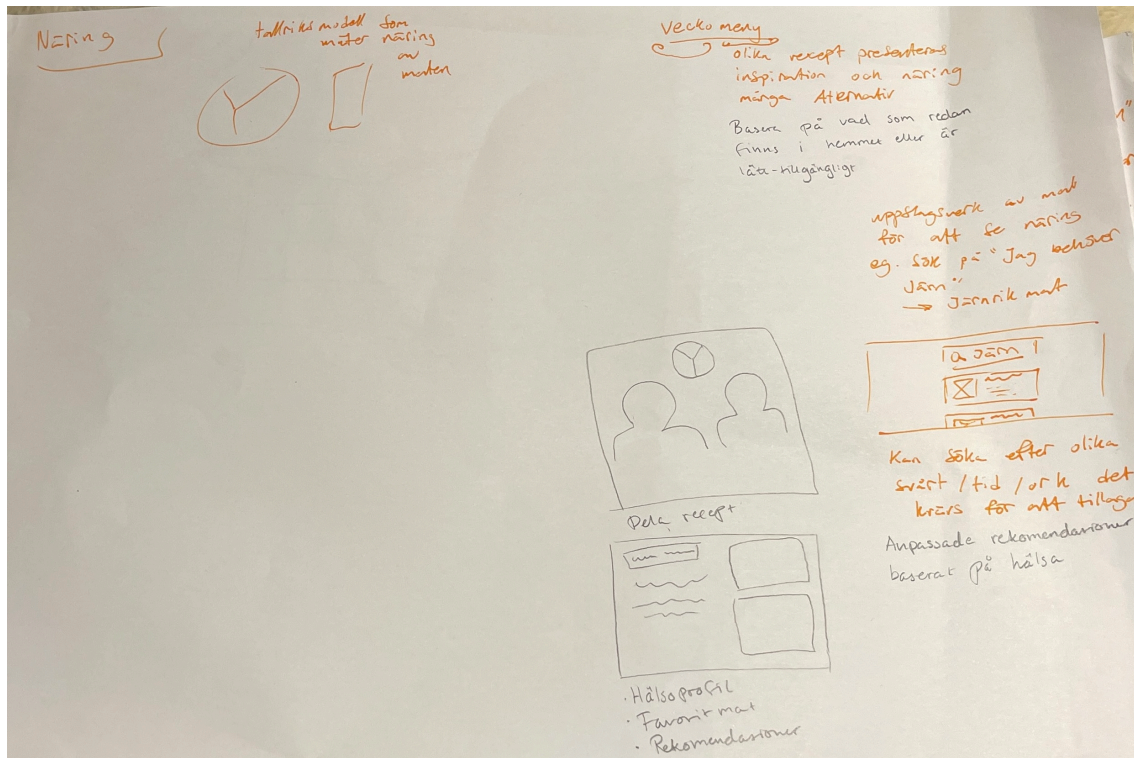 Näring
tallriks modell som
mäter näring
av
maten
veckomeny
olika recept presenteras
inspiration och näring
många Aternativ
Basera på vad som redan
finns i hemmet eller är
lätt-tillgängligt
uppslagsverk av mat
för att se näring
eg. sök på "Jag behöver
Järn"
→ Järnrik mat
Järn
Kan söka efter olika
svårt / tid / ork det
krävs för att tillaga
Anpassade rekomendationer
baserat på hälsa
Dela recept
· Hälsoprofil
· Favoritmat
· Rekomendationer